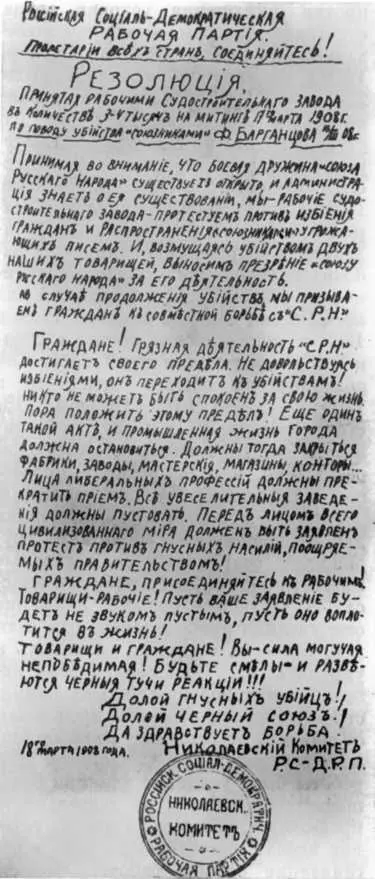 Россійская Соціаль-Демократическая
Рабочая Партія.
Пролетаріи всѣхъ странъ, соединяйтесь!
Резолюція,
принятая рабочими Судостроительнаго завода
въ количествѣ 3-4 тысячъ на митингѣ 17го марта 1908 г.
по поводу убійства "союзниками" Ф. Барганцова
Принимая во вниманіе, что боевая дружина "союза
русскаго народа" существуетъ открыто, и администра-
ція знаетъ о ея существованіи, мы-рабочіе судо-
строительнаго завода-протестуемъ противъ избіенія
граждан и распространенія "союзниками" угрожа-
ющихъ писем. И, возмущаясь убійствомъ двухъ
нашихъ товарищей, выносимъ презрѣніе "союзу
русскаго народа" за его дѣятельность.
Въ случаѣ продолженія убійствъ, мы призыва-
емъ гражданъ къ совмѣстной борьбѣ съ "С.Р.Н."
Граждане! Грязная дѣятельность "С.Р.Н"
достигаетъ своего предѣла. Не довольствуясь
избіеніями, онъ переходитъ къ убійствамъ!
Никто не можетъ быть спокоенъ за свою жизнь.
Пора положить этому предѣлъ! Еще одинъ
такой актъ, и промышленная жизнь города
должна остановиться. Должны тогда закрыться
фабрики, заводы, мастерскія, магазины, конторы...
Лица либеральныхъ профессій должны пре-
кратить пріемъ. Всѣ увеселительныя заведе-
нія должны пустовать. Передъ лицомъ всего
цивилизованнаго міра долженъ быть заявленъ
протестъ противъ гнусныхъ насилій, поощряе-
мыхъ правительствомъ!
Граждане, присоединяйтесь къ рабочимъ!
Товарищи-рабочіе! Пусть ваше заявленіе бу-
детъ не звукомъ пустымъ, пусть оно вопло-
тится въ жизнь!
Товарищи и граждане! Вы-сила могучая
непобѣдимая! Будьте смѣлы-и развѣ-
ются черныя тучи реакціи!!!
Долой гнусныхъ убійцъ!
Долой черный союзъ!
Да здравствуетъ борьба!
18го марта 1908 года. Николаевскій Комитетъ
Р.С-Д.Р.П.
РОССІЙСК. СОЦІАЛ-ДЕМОКРАТИЧ.
НИКОЛАЕВСК.
КОМИТЕТЪ
РАБОЧАЯ ПАРТІЯ